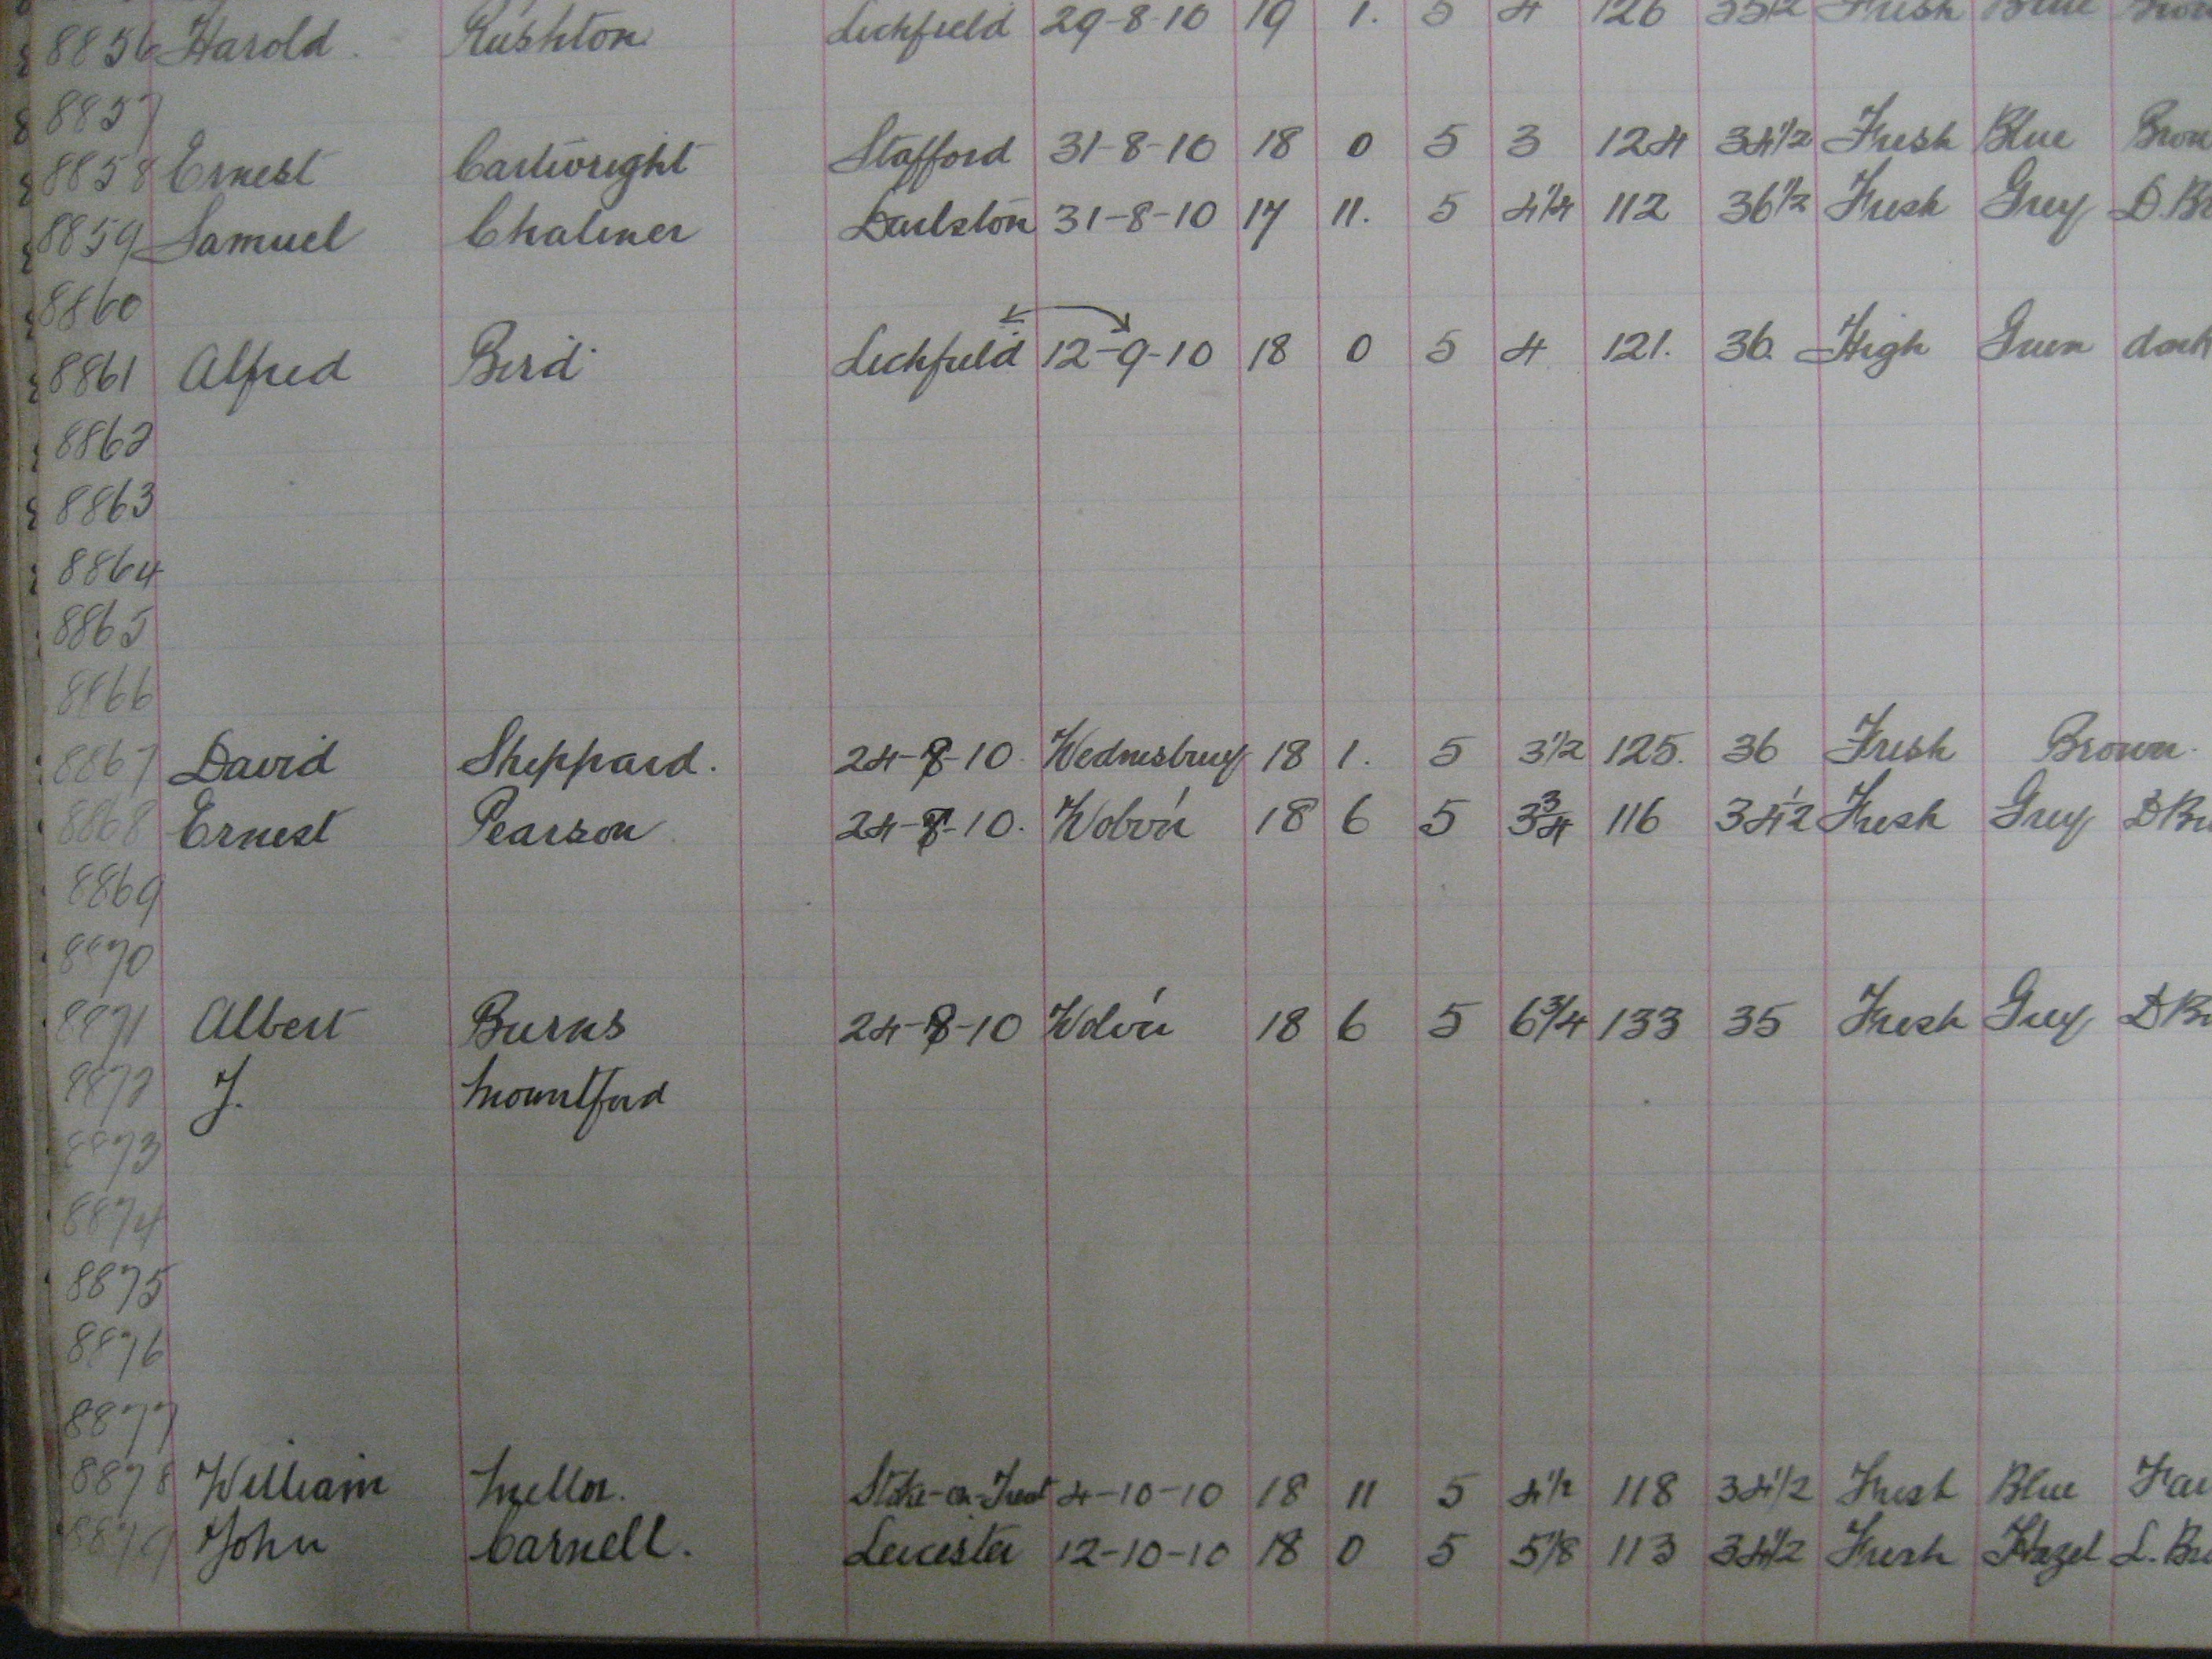 8856 Harold Rushton Lichfield 29-8-10 19 1. 5 4 126 35 1/2 Fresh Blue
8857
8858 Ernest Cartwright Stafford 31-8-10 18 0 5 3 124 34 1/2 Fresh Blue Brow
8859 Samuel Chaliner Darlston 31-8-10 17 11. 5 4 1/4 112 36 1/2 Fresh Grey D. Br
8860
8861 Alfred Bird Lichfield 12-9-10 18 0 5 4 121. 36. High Green dark
8862
8863
8864
8865
8866
8867 David Sheppard. 24-8-10. Wednesbruy 18 1. 5 3 1/2 125. 36 Fresh Brown.
8868 Ernest Pearson 24-8-10. 18 6 5 3 3/4 116 34 1/2 Fresh Grey D Br
8869
8870
8871 Albert Burns 24-8-10 18 6 5 6 3/4 133 35 Fresh Grey D Br
8872 J. Mountford
8873
8874
8875
8876
8877
8878 William Mellor. Stoke-on-Trent 4-10-10 18 11 5 4 1/2 118 34 1/2 Fresh Blue Fai
8879 John Carnell. Leicester 12-10-10 18 0 5 5 1/8 113 34 1/2 Fresh Hazel L. Bro